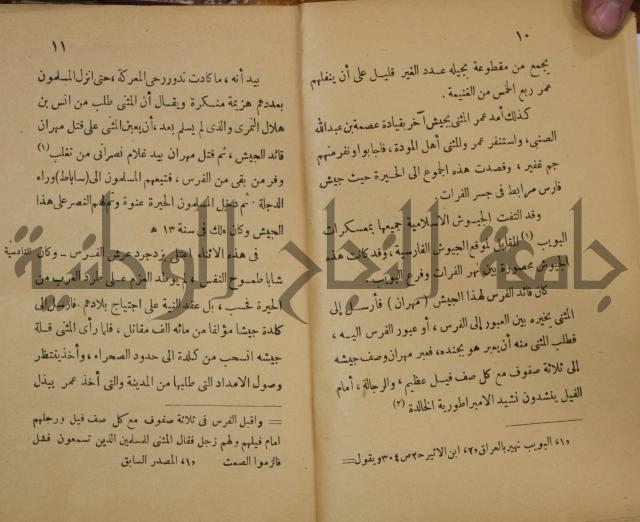 ١٠
يجمع من مقطوعة بجيله عدد الغير قليل على أن ينفلهم
عمر ربع الخمس من الغنيمة .
كذلك أمد عمر المثنى بجيش آخر بقيادة عصمة بن عبد الله
الضبي، واستنفر عمر والمثنى أهل المودة، فاجابوا ونفر منهم
جم غفير، وقصدت هذه الجموع الى الحيرة حيث جيش
فارس مرابط فى جسر الفرات .
وقد التفت الجيوش الاسلامية جميعها بمعسكرات
البويب (١) المقابل لموقع الجيوش الفارسية، وقد كانت هذه
الجيوش محصورة بين نهر الفرات وفرع البويب.
كان قائد الفرس لهذا الجيش (مهران) فأرسل إلى
المثنى يخيره بين العبور إلى الفرس، أو عبور الفرس اليه،
فطلب المثنى منه أن يعبر هو بجنده، فعبر مهران وصف جيشه
إلى ثلاثة صفوف مع كل صف فيل عظيم، والرجالة، أمام
الفيل ينشدون نشيد الامبراطورية الخالدة (٢)
«١» البويب نهير بالعراق «٢» ابن الاثير ح٢ ص ٣٠٤ ويقول =
١١
بيد أنه، ما كادت تدور رحى المعركة، حتى انزل المسلمون
بعددهم هزيمة منكرة ويقال أن المثنى طلب من انس بن
هلال النمرى والذى لم يسلم بعد، أن يعين المثنى على قتل مهران
قائد الجيش، ثم قتل مهران بيد غلام نصرانى من تغلب (١)
وفر من بقى من الفرس، فتبعهم المسلمون الى (ساباط) وراء
الدجلة . ثم دخل المسلمون الحيرة عنوة وتم لهم النصر على هذا
الجيش وكان ذلك فى سنة ١٣ ه
فى هذه الاثناء اعتلى يزدجرد عرش الفرس – وكان
القادسية
شابا طموح النفس، لم يوطد العزم على طرد العرب من
الحيرة فحسب، بل عقد النية على اجتياح بلادهم فأرسل إلى
كلدة جيشا مؤلفا من مائه الف مقاتل، فلما رأى المثنى قلة
جيشه انسحب من كلدة الى حدود الصحراء، وأخذ ينتظر
وصول الامداد التى طلبها من المدينة والتى أخذ عمر يبذل
= واقبل الفرس فى ثلاثة صفوف مع كل صف فيل ورجلهم
امام فيلهم ولهم زجل فقال المثنى للمسلمين الذين تسمعون فشل
فالزموا الصمت «١» المصدر السابق
جامعة النجاح الوطنية